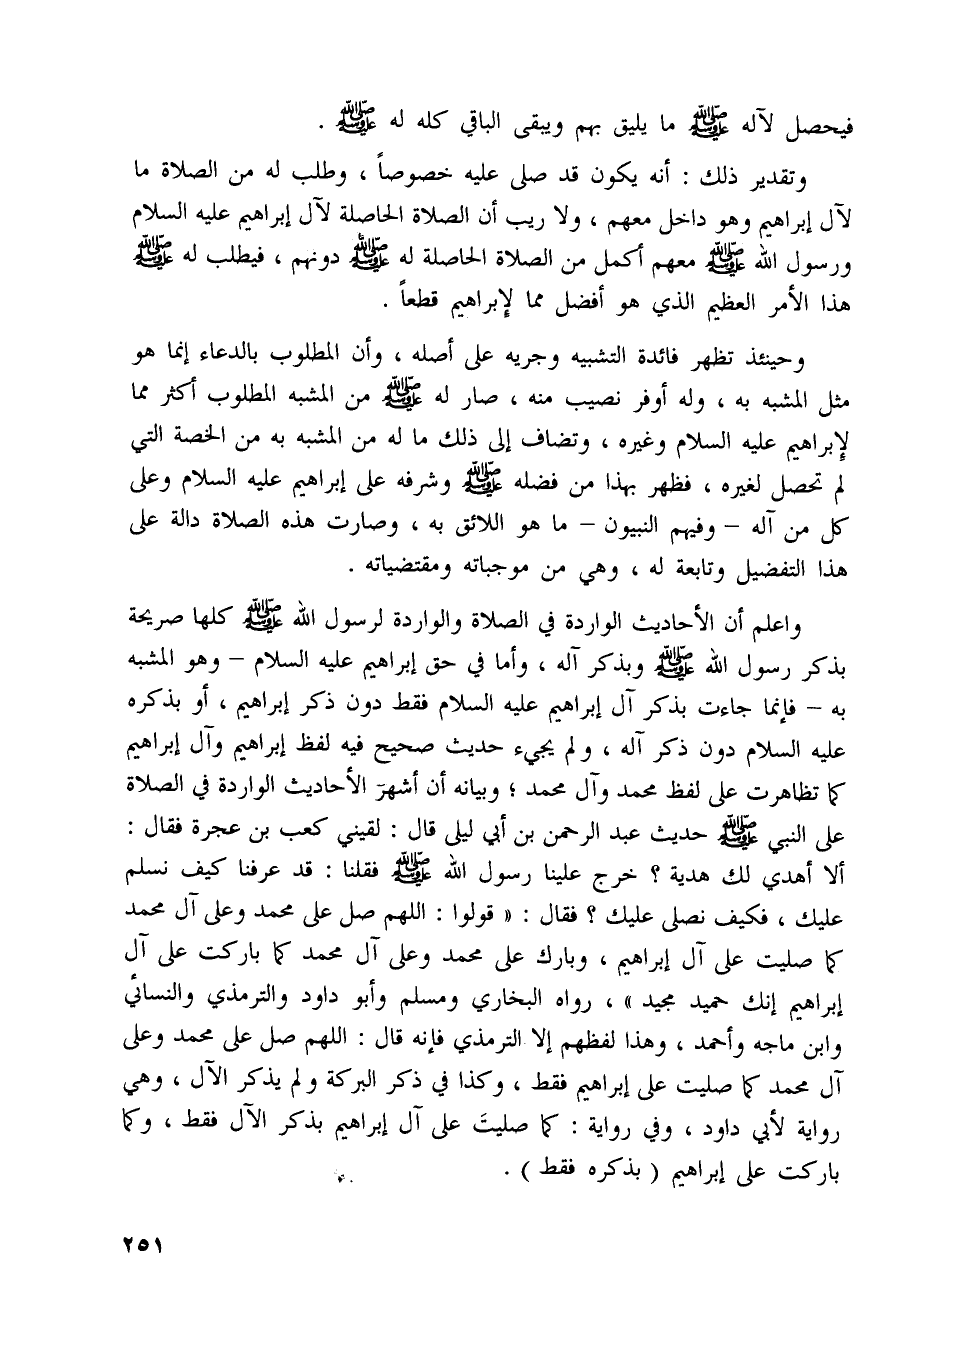 فيحصل لآله ﷺ ما يليق بهم ويبقى الباقي كله له ﷺ .
وتقدير ذلك : أنه يكون قد صلى عليه خصوصاً ، وطلب له من الصلاة ما
لآل إبراهيم وهو داخل معهم ، ولا ريب أن الصلاة الحاصلة لآل إبراهيم عليه السلام
ورسول الله ﷺ معهم أكمل من الصلاة الحاصلة له ﷺ دونهم ، فيطلب له ﷺ
هذا الأمر العظيم الذي هو أفضل مما لإبراهيم قطعاً .
وحينئذ تظهر فائدة التشبيه وجريه على أصله ، وأن المطلوب بالدعاء إنما هو
مثل المشبه به ، وله أوفر نصيب منه ، صار له ﷺ من المشبه المطلوب أكثر مما
لإبراهيم عليه السلام وغيره ، وتضاف إلى ذلك ما له من المشبه به من الخصة التي
لم تحصل لغيره ، فظهر بهذا من فضله ﷺ وشرفه على إبراهيم عليه السلام وعلى
كل من آله – وفيهم النبيون – ما هو اللائق به ، وصارت هذه الصلاة دالة على
هذا التفضيل وتابعة له ، وهي من موجباته ومقتضياته .
واعلم أن الأحاديث الواردة في الصلاة والواردة لرسول الله ﷺ كلها صريحة
بذكر رسول الله ﷺ وبذكر آله ، وأما في حق إبراهيم عليه السلام – وهو المشبه
به – فإنما جاءت بذكر آل إبراهيم عليه السلام فقط دون ذكر إبراهيم ، أو بذكره
عليه السلام دون ذكر آله ، ولم يجيء حديث صحيح فيه لفظ إبراهيم وآل إبراهيم
كما تظاهرت على لفظ محمد وآل محمد ؛ وبيانه أن أشهرَ الأحاديث الواردة في الصلاة
على النبي ﷺ حديث عبد الرحمن بن أبي ليلى قال : لقيني كعب بن عجرة فقال :
ألا أهدي لك هدية ؟ خرج علينا رسول الله ﷺ فقلنا : قد عرفنا كيف نسلم
عليك ، فكيف نصلي عليك ؟ فقال : « قولوا : اللهم صل على محمد وعلى آل محمد
كما صليت على آل إبراهيم ، وبارك على محمد وعلى آل محمد كما باركت على آل
إبراهيم إنك حميد مجيد » ، رواه البخاري ومسلم وأبو داود والترمذي والنسائي
وابن ماجه وأحمد ، وهذا لفظهم إلا الترمذي فإنه قال : اللهم صل على محمد وعلى
آل محمد كما صليت على إبراهيم فقط ، وكذا في ذكر البركة ولم يذكر الآل ، وهي
رواية لأبي داود ، وفي رواية : كما صليتَ على آل إبراهيم بذكر الآل فقط ، وكما
باركت على إبراهيم ( بذكره فقط ) .
٢٥١